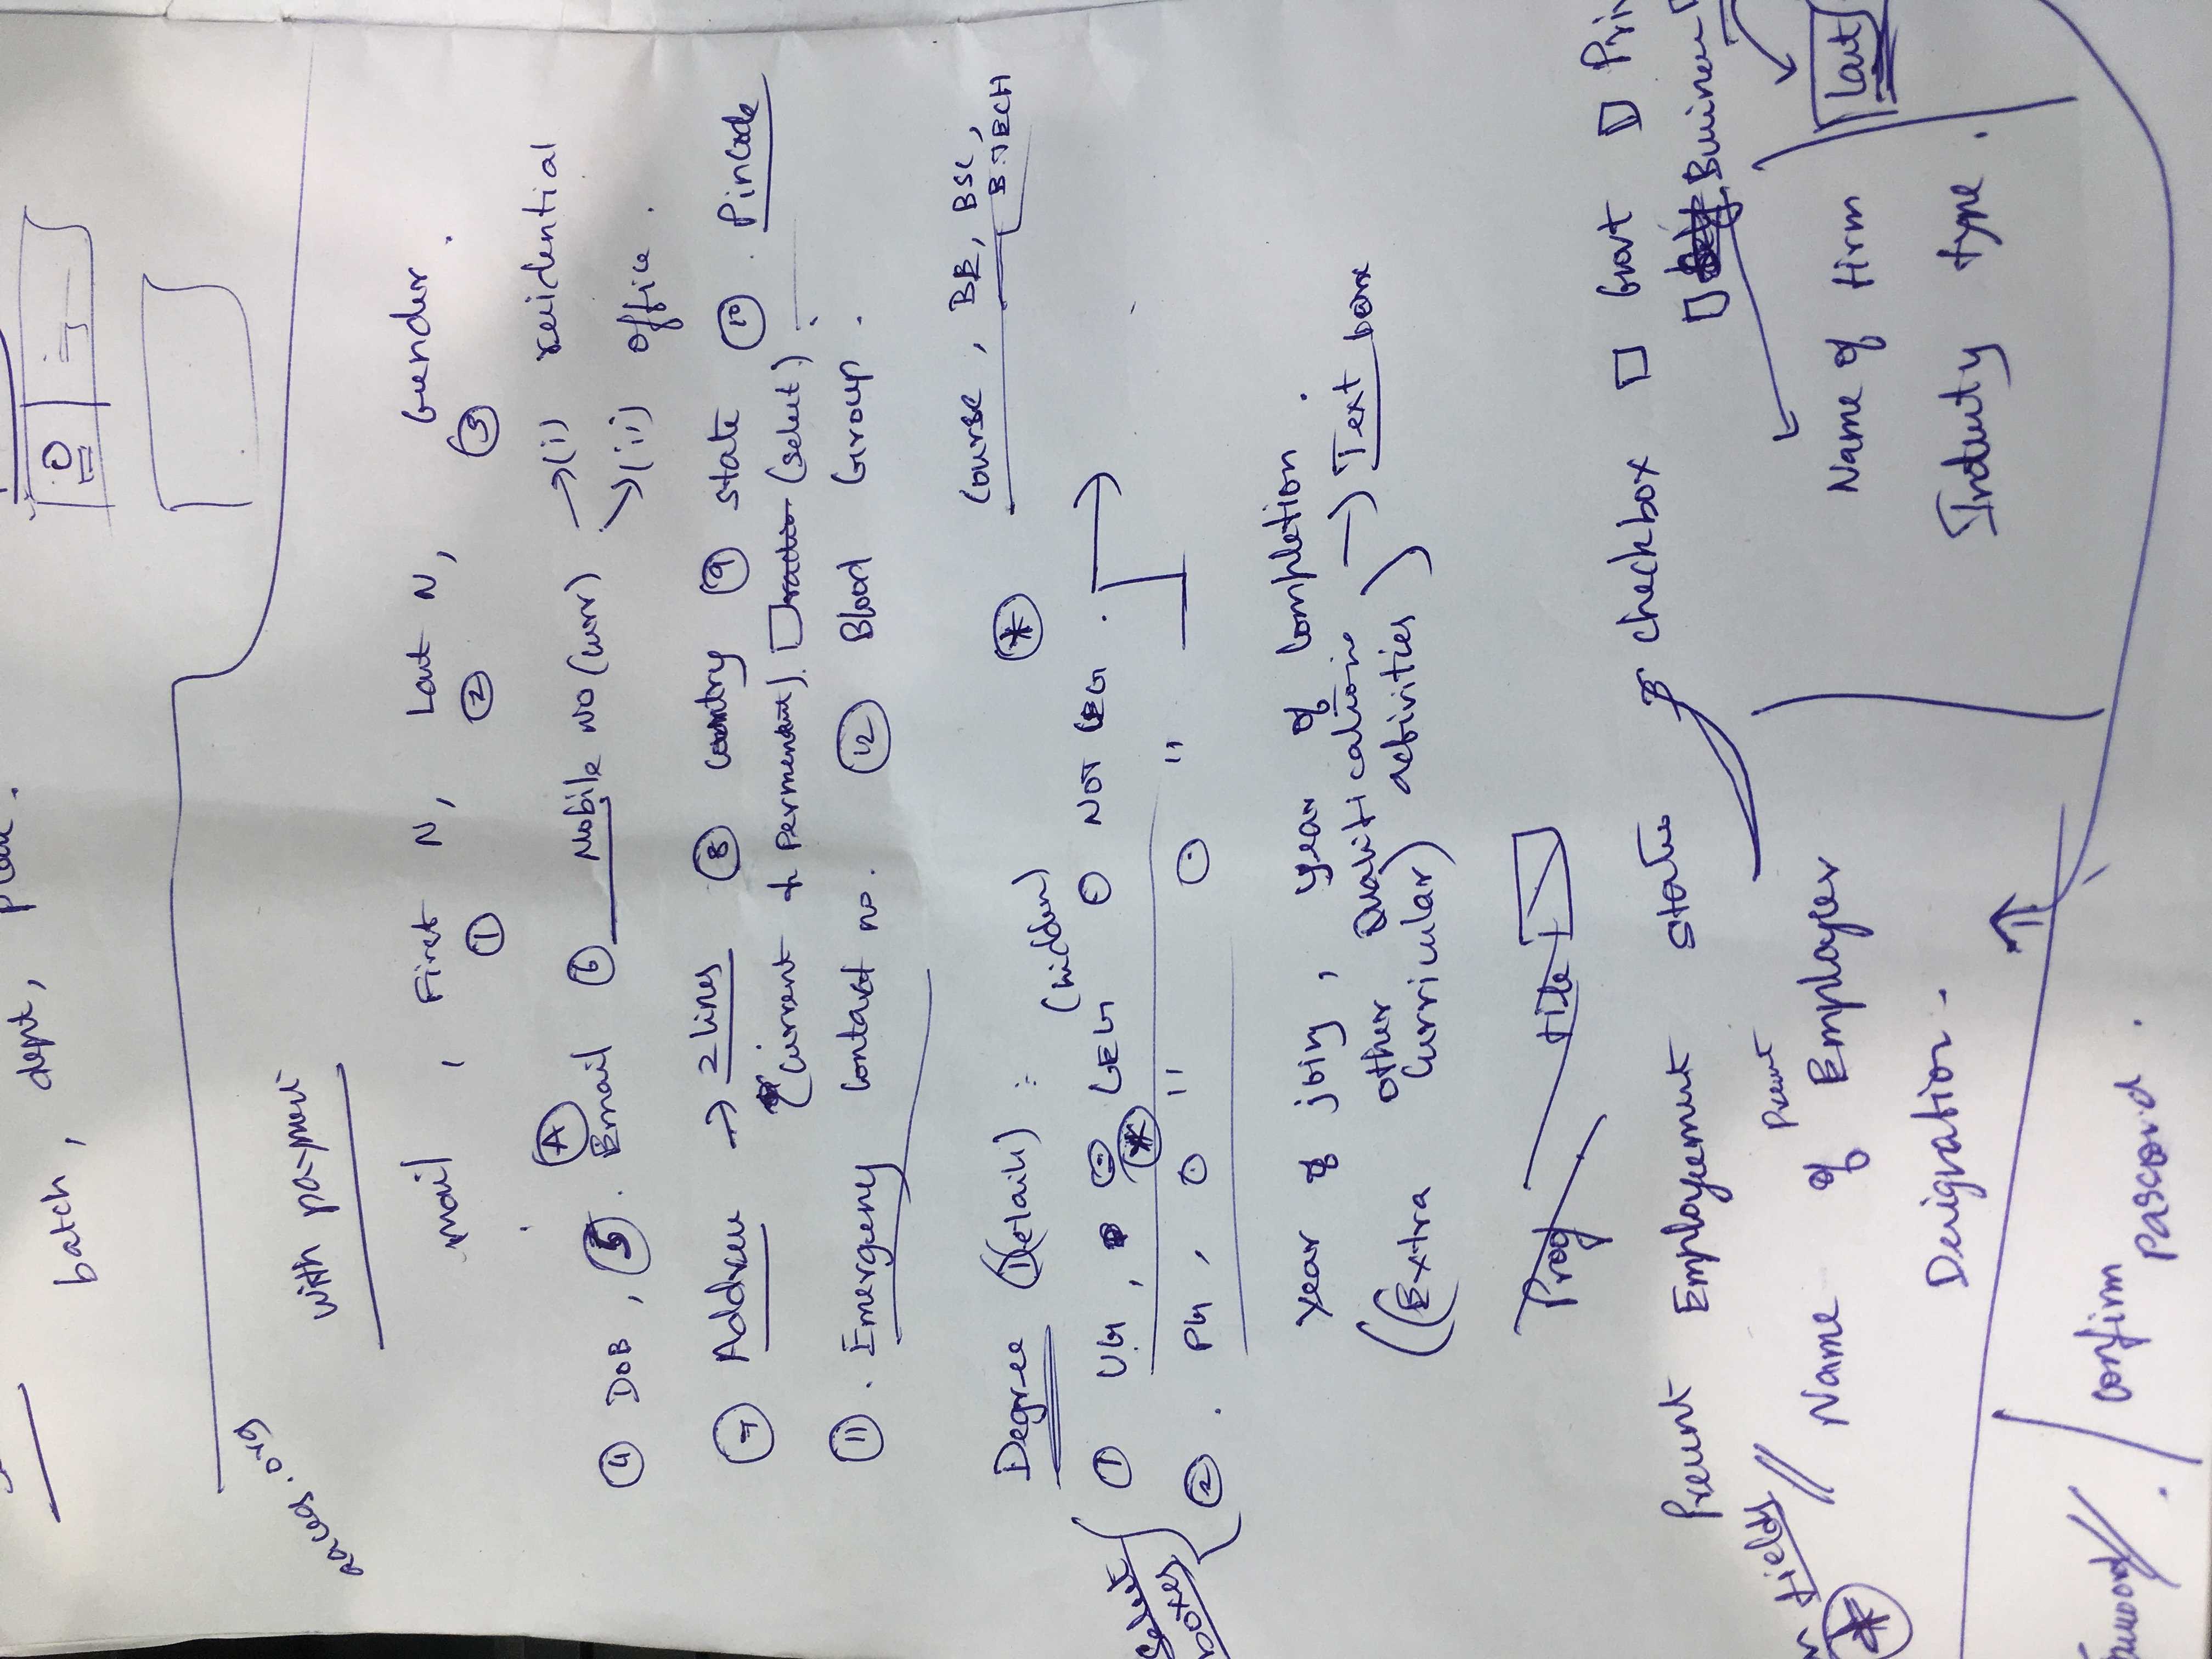 batch, dept,
aaceg.org
with payment
mail, First N, Last N, Gender.
① ② ③
Ⓐ
④ DOB, ⑤. Email ⑥ Mobile no (curr) → (i) residential
→ (ii) office.
⑦ Address → 2 lines ⑧ country ⑨ state ⑩. Pincode
(current & permenent). (select).
⑪. Emergency contact no. ⑫ Blood Group.
* course, BE, BSC,
B.TECH
Degree (Details):
(hidden)
Select boxes
① UG, CEG NOT CEG.
*
②. PG, " "
Year of joing, year of completion.
other Qualifications → Text box
((Extra curricular) activities)
Prog title
Present Employeement status checkbox Govt Pri
Business
fields
* Name of Present Employer
Name of firm
Last
Designation.
Industry type.
confirm
password.